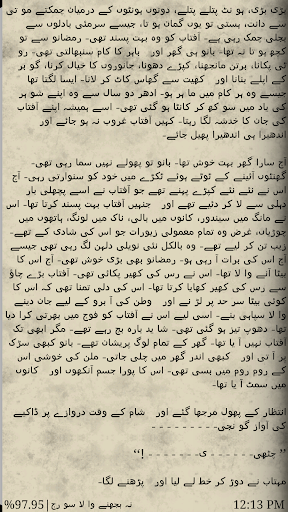 بڑی بڑی، ہو نٹ پتلے پتلے، دونوں ہونٹوں کے درمیان چمکتے مو تی
سے دانت، ہستی تو یوں گماں ہو تا، جیسے سرمئی بادلوں سے
بجلی چمک رہی ہے۔ آفتاب کو وہ بہت پسند تھی۔ رمضانو سے تو
کچھ ہو تا نہ تھا۔ بانو ہی گھر اور باہر کا کام سنبھالتی تھی۔ رو
ٹی پکانا، برتن مانجھنا، کپڑے دھونا، جانوروں کا خیال کرنا، گو بر
کے اپلے بنانا اور کھیت سے گھاس کاٹ کر لانا۔ ایسا لگتا تھا
جیسے وہ ہر کام میں ما ہر ہو۔ ادھر دو سال سے وہ اپنے شو ہر
کی یاد میں سو کھ کر کانٹا ہو گئی تھی۔ اسے ہمیشہ اپنے آفتاب
کی جان کا خدشہ لگا رہتا۔ کہیں آفتاب غروب نہ ہو جائے اور
اندھیرا ہی اندھیرا پھیل جائے۔
آج سارا گھر بہت خوش تھا۔ بانو تو پھولے نہیں سما رہی تھی۔
گھنٹوں آئینے کے ٹوٹے ہوئے ٹکڑے میں خود کو سنوارتی رہی۔ آج
اس نے نئے نئے کپڑے پہنے تھے جو آفتاب نے اسے پچھلی بار
دہلی سے لا کر دئیے تھے اور جنہیں آفتاب بہت پسند کرتا تھا۔ اس
نے مانگ میں سیندور، کانوں میں بالی، ناک میں لونگ، ہاتھوں میں
چوڑیاں، غرض وہ تمام معمولی زیورات جو اس کی شادی کے تھے۔
زیب تن کر لیے تھے۔ وہ بالکل نئی نویلی دلہن لگ رہی تھی جیسے
آج اس کی برات آ رہی ہو۔ رمضانو بھی بڑی خوش تھی۔ آج اس کا
بیٹا آنے وا لا تھا۔ اس نے رس کی کھیر پکائی تھی۔ آفتاب بڑے چاؤ
سے رس کی کھیر کھایا کرتا تھا۔ اس کی دلی تمنا تھی کہ اس کا
کوئی بیٹا سر حد پر لڑ نے اور وطن کی آ برو کے لیے جان دینے
وا لا سپاہی بنے۔ اسی لیے اس نے آفتاب کو فوج میں بھرتی کرا دیا
تھا۔ دھوپ تیز ہو گئی تھی۔ شا ید بارہ بج رہے تھے۔ مگر ابھی تک
آفتاب نہیں آ یا تھا۔ گھر کے تمام لوگ پریشان تھے۔ بانو کبھی سڑک
پر آ تی اور کبھی اندر گھر میں چلی جاتی۔ ملن کی خوشی اس
کے روم روم میں بسی تھی۔ اس کا پورا جسم آنکھوں اور کانوں
میں سمٹ آ یا تھا۔
انتظار کے پھول مرجھا گئے اور شام کے وقت دروازے پر ڈاکیے
کی آواز گو نجی۔۔۔۔۔۔۔۔۔
’’ چٹھی۔۔۔۔۔۔ ی۔۔۔۔۔۔۔ !‘‘
مہتاب نے دوڑ کر خط لے لیا اور پڑھنے لگا۔
%97.95 | نہ بجھنے وا لا سو رج 12:13 PM